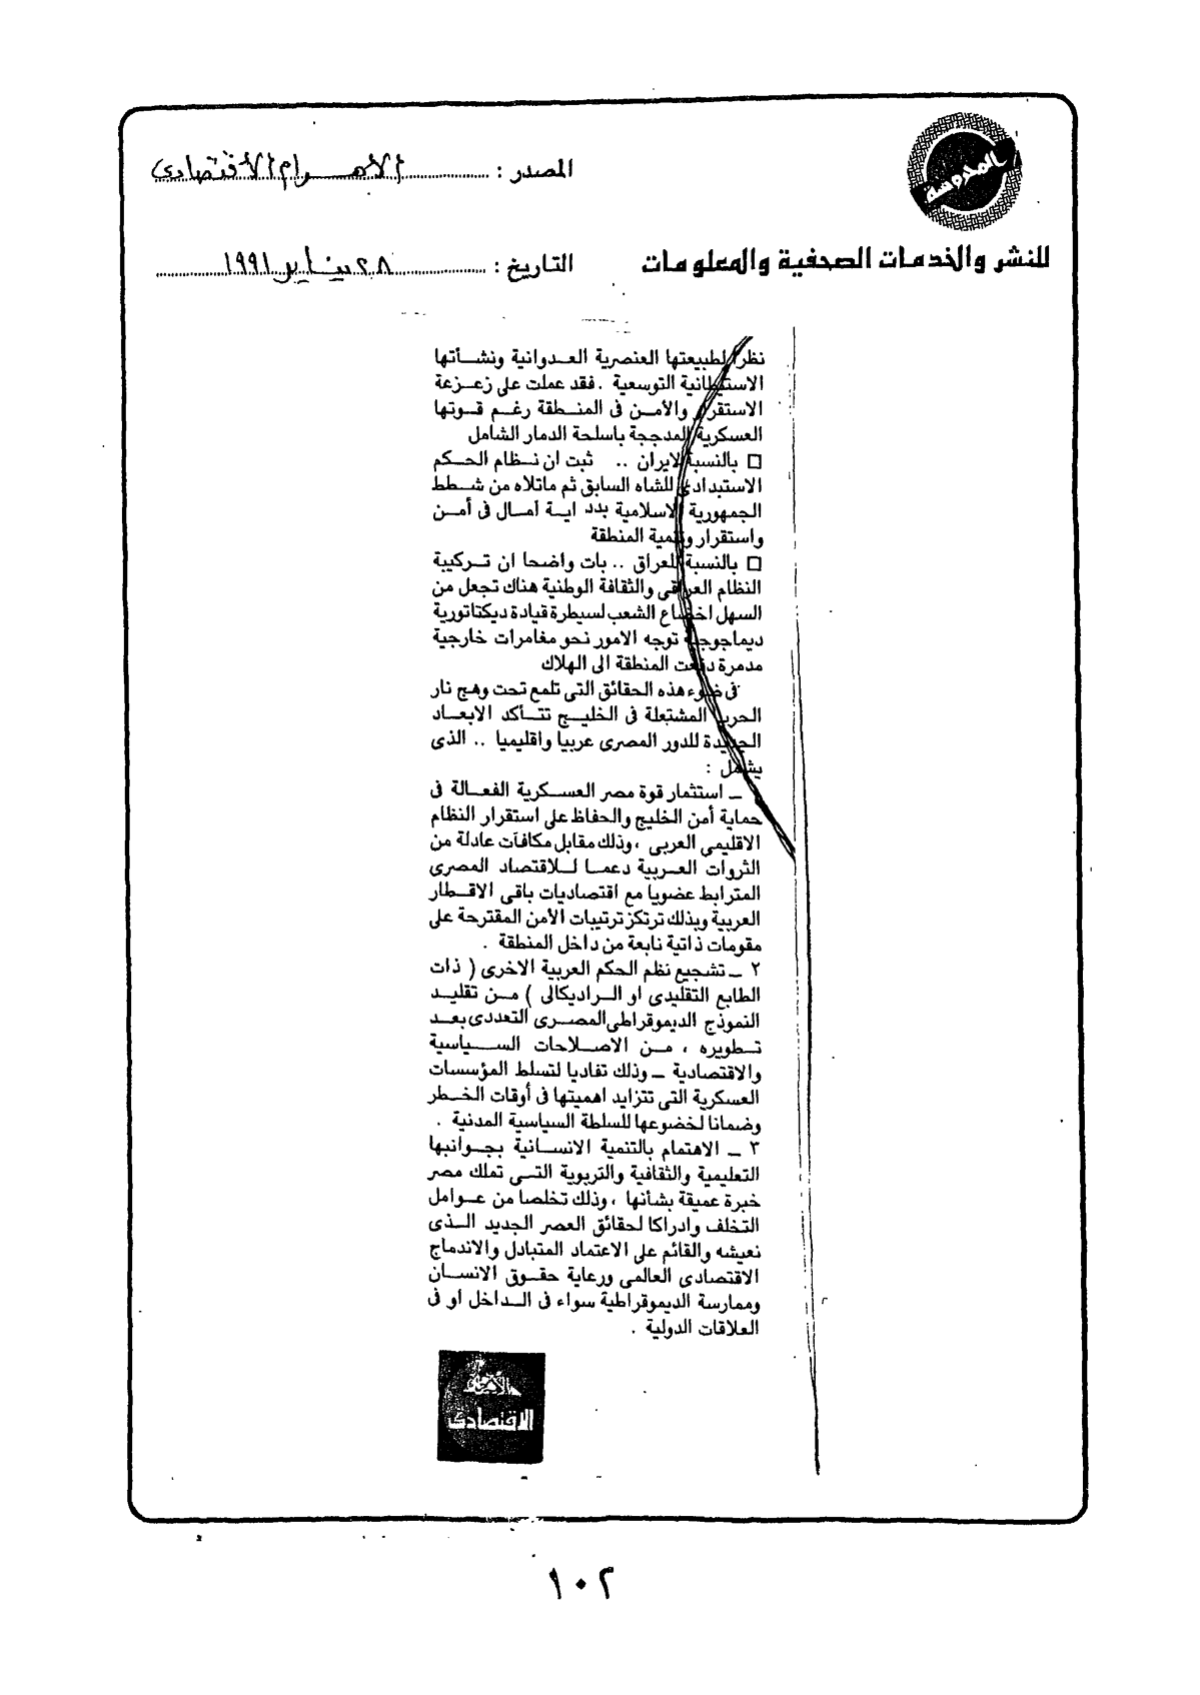 المدوسة
المصدر : الأهرام الأقتصادى
للنشر والخدمات الصحفية والمعلومات
التاريخ : ٢٨ يناير ١٩٩١
نظرا لطبيعتها العنصرية العدوانية ونشأتها
الاستيطانية التوسعية . فقد عملت على زعزعة
الاستقرار والأمن فى المنطقة رغم قوتها
العسكرية المدججة باسلحة الدمار الشامل
□ بالنسبة لايران .. ثبت ان نظام الحكم
الاستبدادى للشاه السابق ثم ماتلاه من شطط
الجمهورية الاسلامية بدد اية آمال فى أمن
واستقرار وتنمية المنطقة
□ بالنسبة للعراق .. بات واضحا ان تركيبة
النظام العراقى والثقافة الوطنية هناك تجعل من
السهل اخضاع الشعب لسيطرة قيادة ديكتاتورية
ديماجوجية توجه الامور نحو مغامرات خارجية
مدمرة دفعت المنطقة الى الهلاك
فى ضوء هذه الحقائق التى تلمع تحت وهج نار
الحرب المشتعلة فى الخليج تتأكد الابعاد
الجديدة للدور المصرى عربيا واقليميا .. الذى
يشمل :
ــ استثمار قوة مصر العسكرية الفعالة فى
حماية أمن الخليج والحفاظ على استقرار النظام
الاقليمى العربى ، وذلك مقابل مكافآت عادلة من
الثروات العربية دعما للاقتصاد المصرى
المترابط عضويا مع اقتصاديات باقى الاقطار
العربية وبذلك ترتكز ترتيبات الأمن المقترحة على
مقومات ذاتية نابعة من داخل المنطقة .
٢ ــ تشجيع نظم الحكم العربية الاخرى ( ذات
الطابع التقليدى او الراديكالى ) من تقليد
النموذج الديموقراطى المصرى التعددى بعد
تطويره ، من الاصلاحات السياسية
والاقتصادية ــ وذلك تفاديا لتسلط المؤسسات
العسكرية التى تتزايد اهميتها فى أوقات الخطر
وضمانا لخضوعها للسلطة السياسية المدنية .
٣ ــ الاهتمام بالتنمية الانسانية بجوانبها
التعليمية والثقافية والتربوية التى تملك مصر
خبرة عميقة بشأنها ، وذلك تخلصا من عوامل
التخلف وادراكا لحقائق العصر الجديد الذى
نعيشه والقائم على الاعتماد المتبادل والاندماج
الاقتصادى العالمى ورعاية حقوق الانسان
وممارسة الديموقراطية سواء فى الداخل او فى
العلاقات الدولية .
الأهرام
الاقتصادى
١٠٢